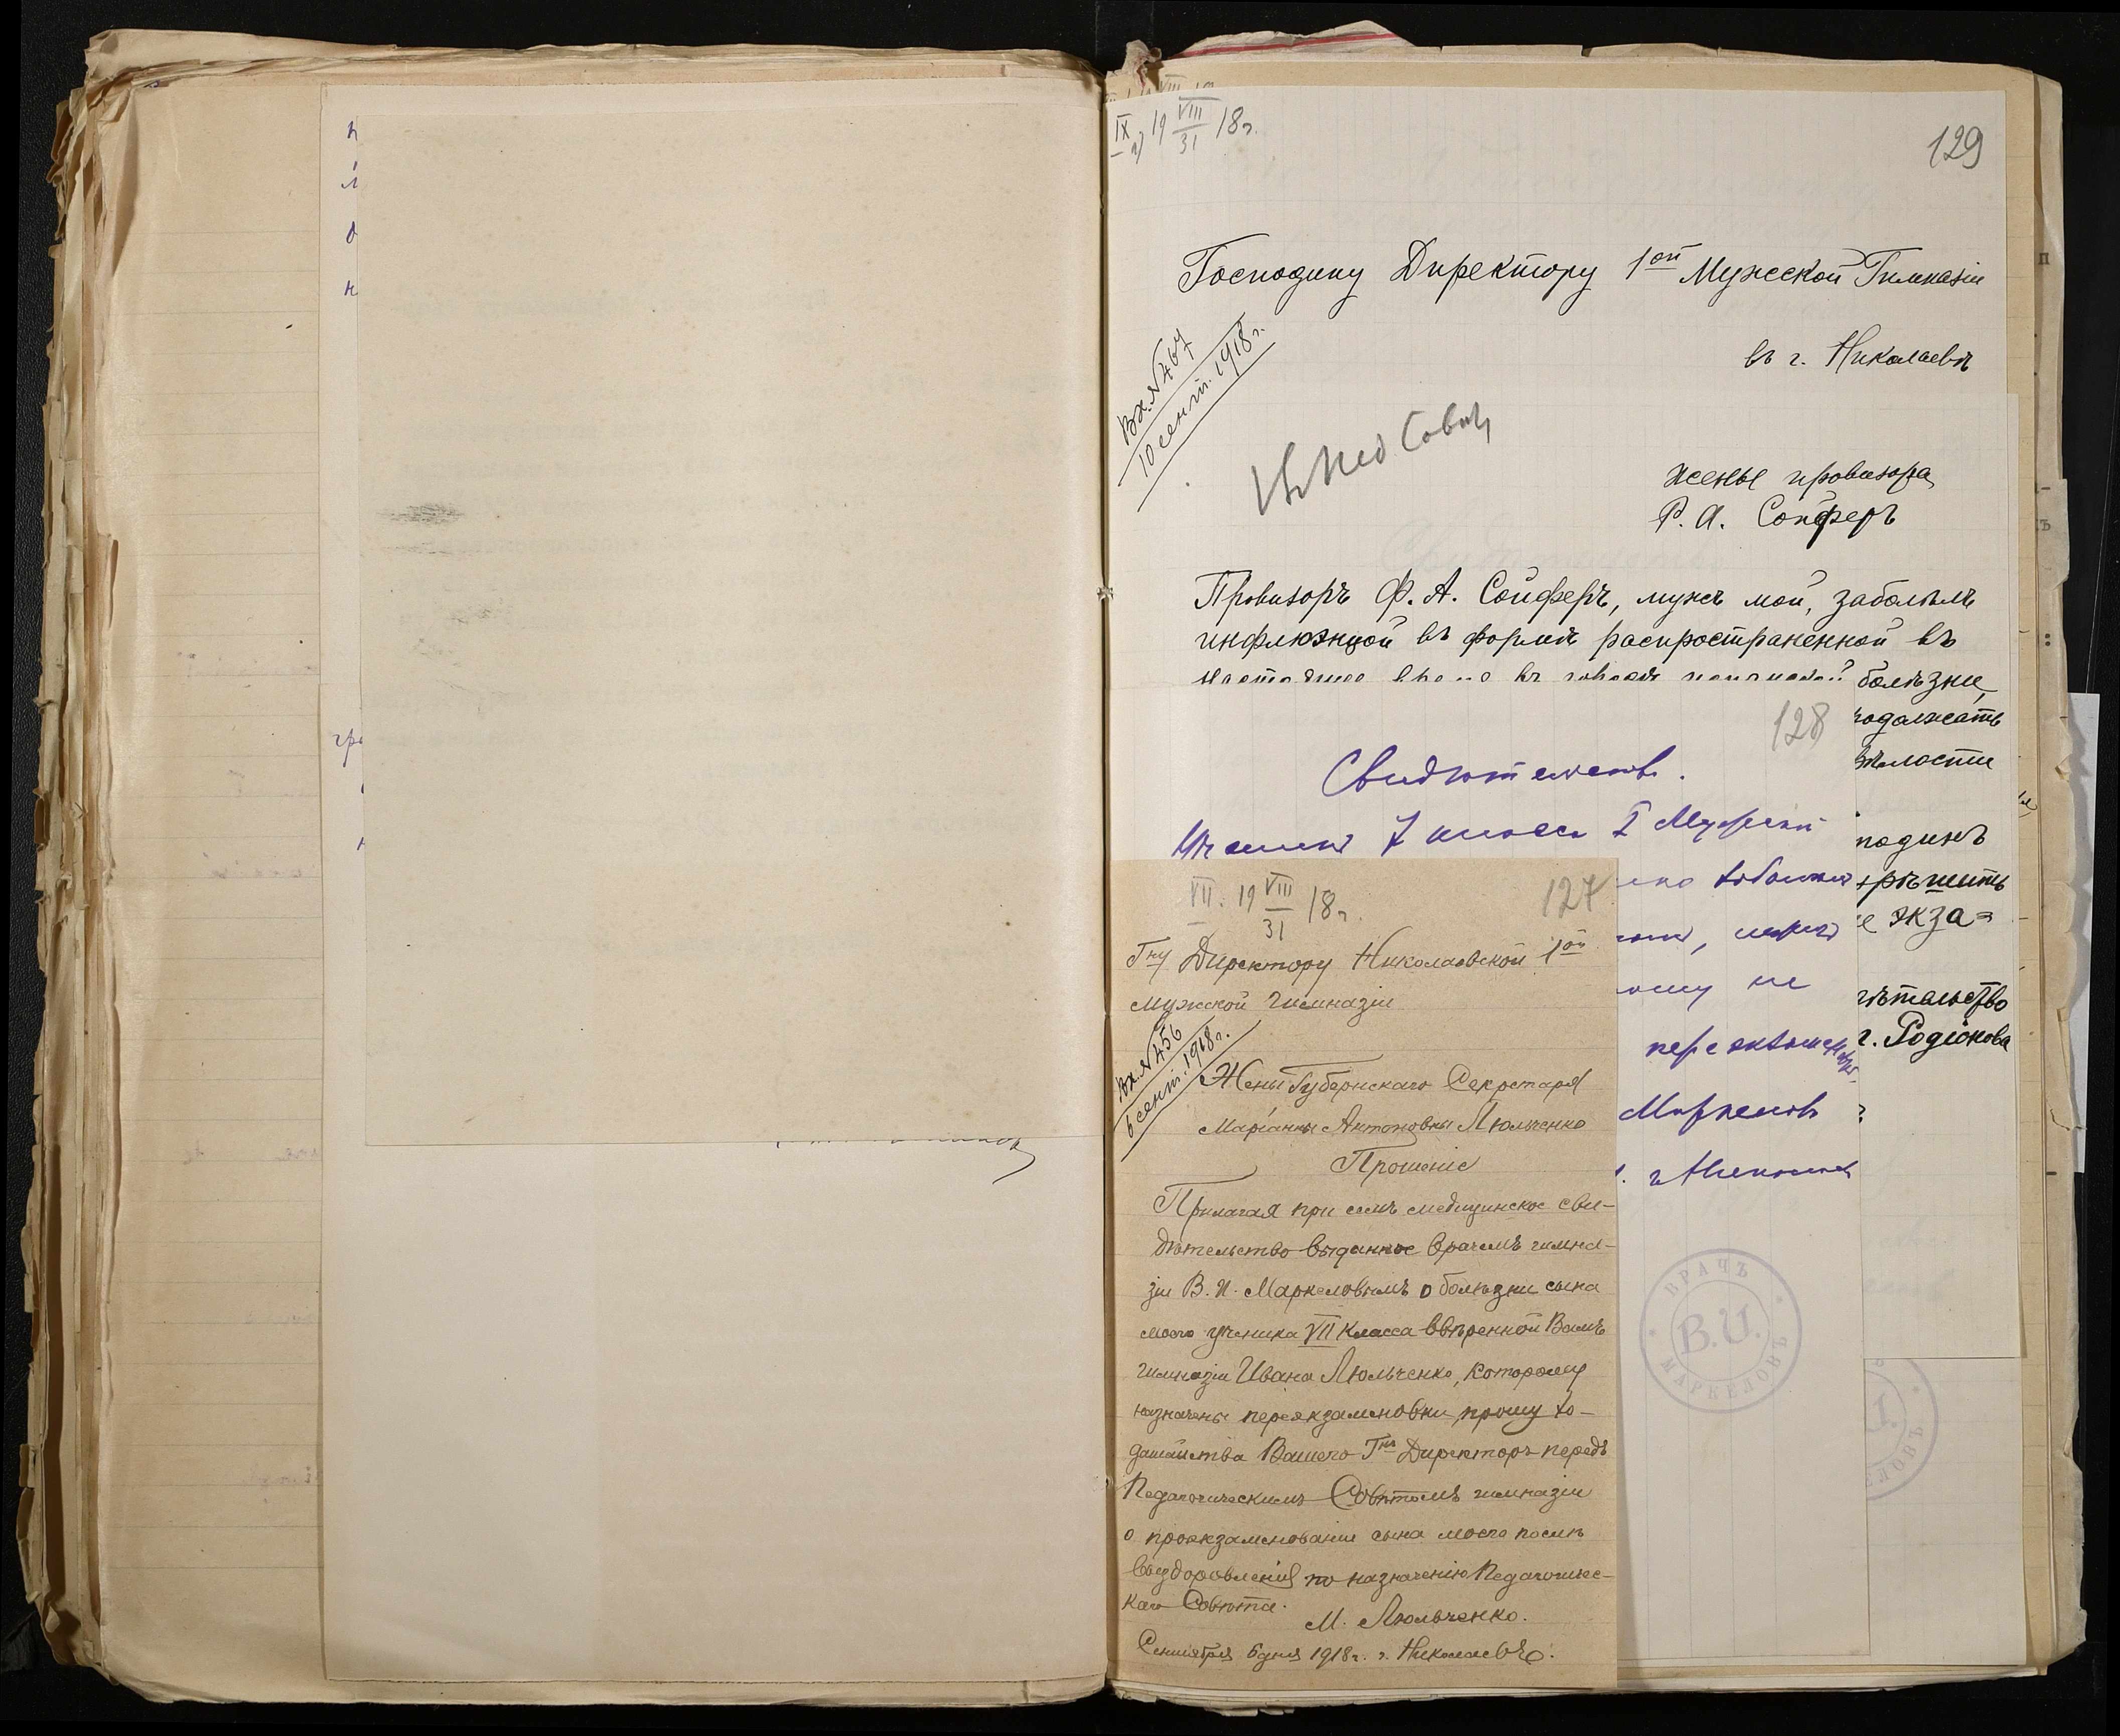 IX 19 VIII/31 18 г.
129
Господину Директору 1ой Мужской Гимназіи
въ г. Николаевѣ
Вх. № 467
10 сент. 1918 г.
Въ Пед Совѣт
жены провизора
Р. А. Сойферъ
Провизоръ Ф. А. Сойферъ, мужъ мой, заболѣлъ
инфлюэнцой въ формѣ распространенной въ
настоящее время въ городѣ испанской болѣзни,
128
одолжать
ѣлости
Свидѣтельство.
Ученикъ 7 класса I Мужской
подинъ
рѣшить
е экза=
перэкзаменов
ѣтельство
г. Родіонова
Маркеловъ
г. Николаев
ВРАЧЪ
В. И.
МАРКЕЛОВЪ
VII. 19 VIII/31 18 г.
127
Гну Директору Николаевской 1ой
мужской гимназіи
Вх. № 456
6 сент. 1918 г.
Жены Губернскаго Секретаря
Маріанны Антоновны Люльченко
Прошеніе
Прилагая при семъ медицинское сви-
дѣтельство выданное врачемъ гимна-
зіи В. И. Маркеловымъ о болѣзни сына
моего ученика VII класса ввѣренной Вамъ
гимназіи Ивана Люльченко, которому
назначены переэкзаменовки, прошу хо-
датайства Вашего Гнъ Директоръ передъ
Педагогическимъ Совѣтомъ гимназіи
о проэкзаменованіи сына моего послѣ
выздоровленія по назначенію Педагогичес-
каго Совѣта.
М. Люльченко.
Сентября 6 дня 1918 г. г. Николаевъ.